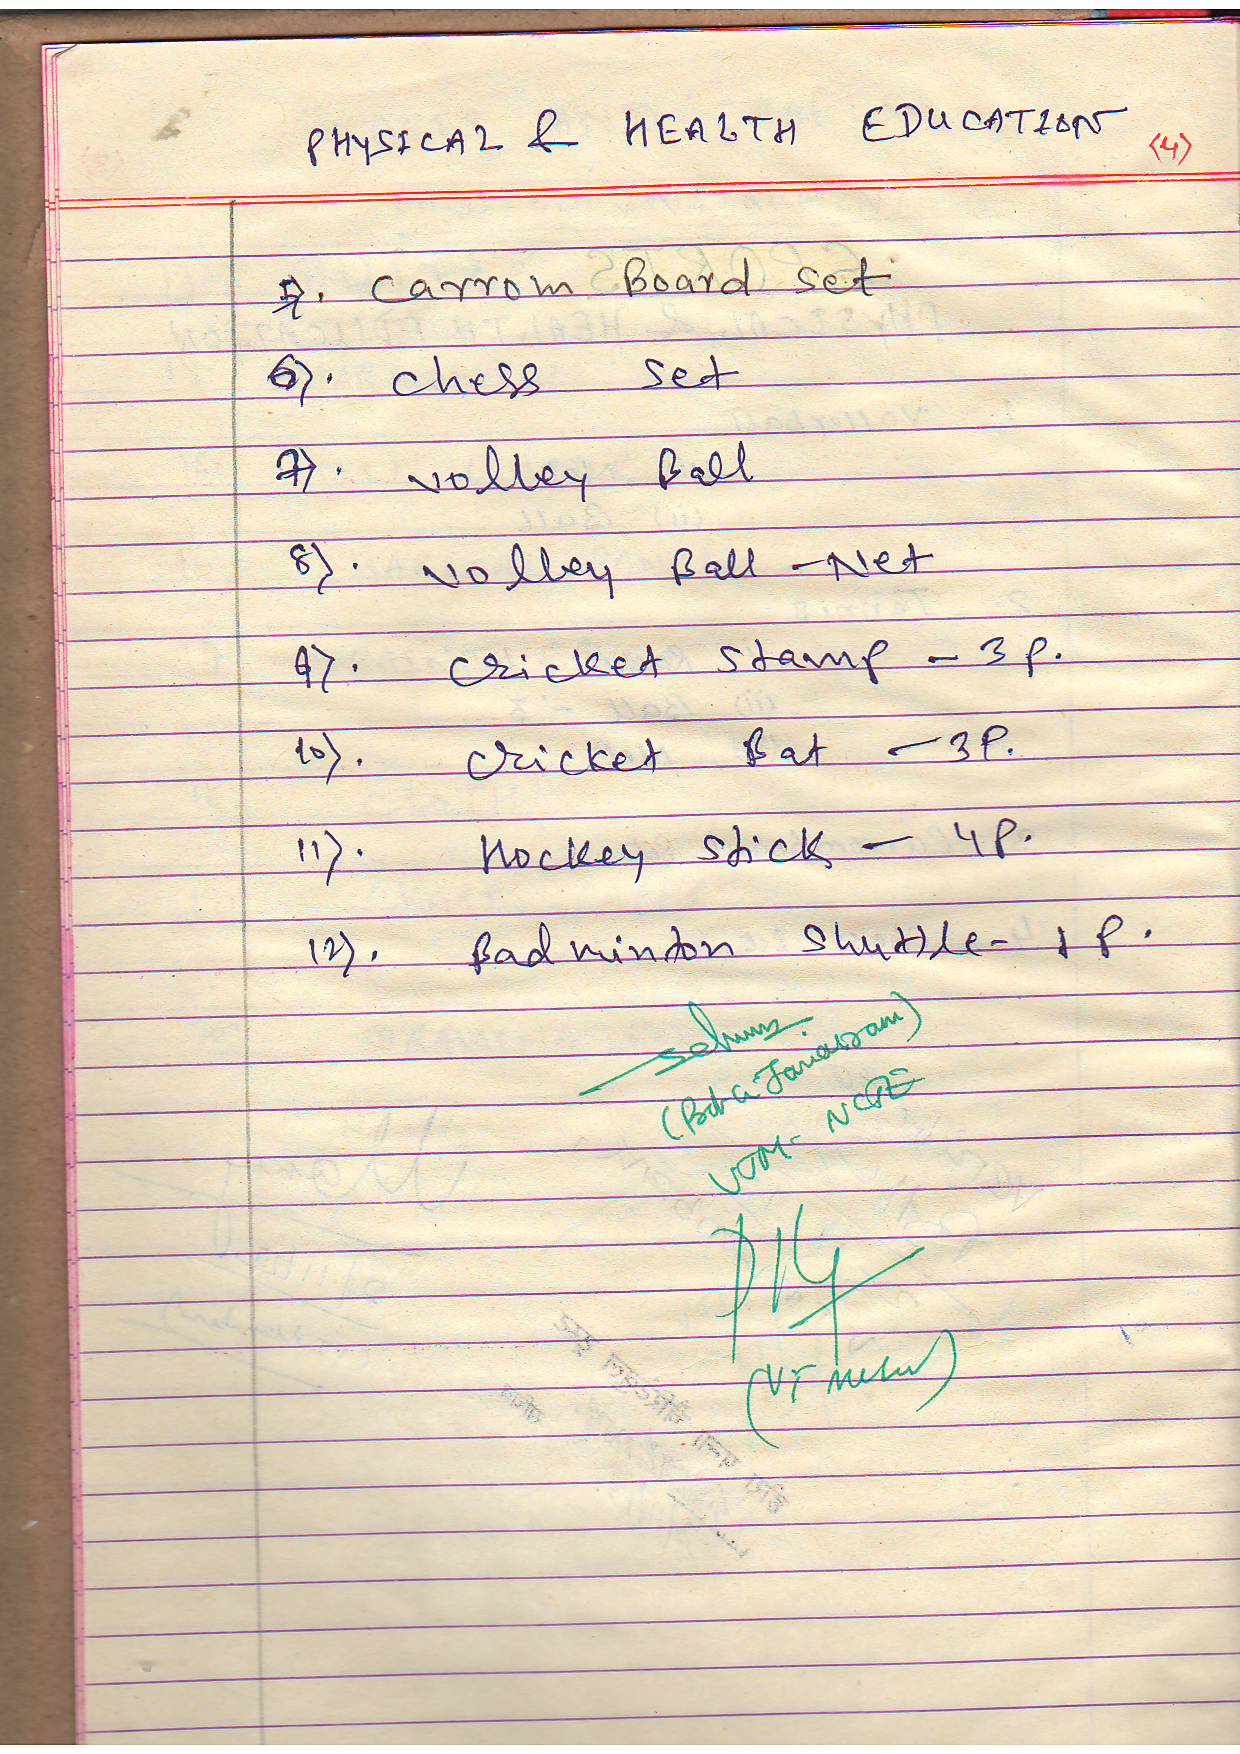 PHYSICAL & HEALTH EDUCATION
(4)
5). Carrom Board set
6). Chess set
7). Volley Ball
8). Volley Ball - Net
9). Cricket Stamp - 3 P.
10). Cricket Bat - 3 P.
11). Hockey stick - 4 P.
12). Badminton Shuttle - 1 P.
NCTE
(VT Member)